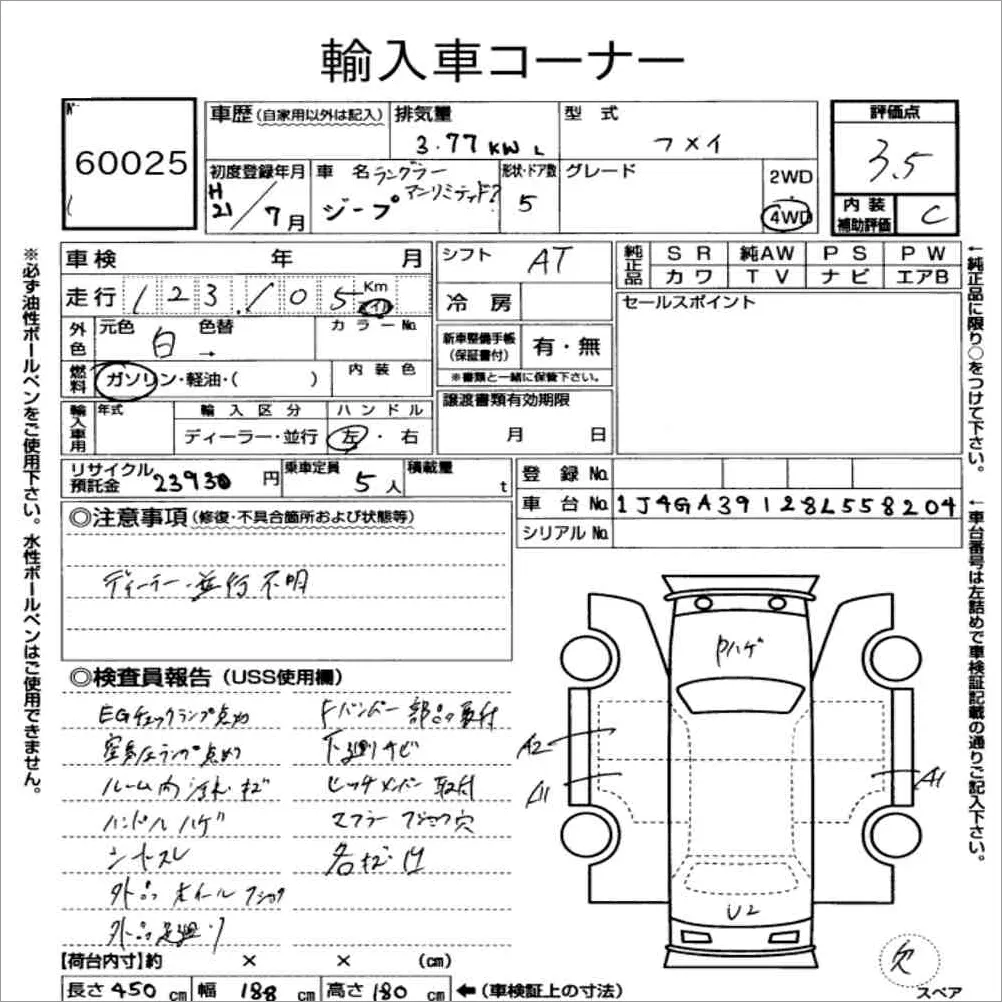 輸入車コーナー
№
60025
車歴 (自家用以外は記入)
排気量
3.77 KW L
型 式
フメイ
評価点
3.5
内装補助評価
C
初度登録年月
H21/7月
車 名
ラングラー
アンリミテッド
ジープ
形状・ドア数
5
グレード
2WD
4WD
車検 年 月
走行 123,105 Km
シフト
AT
冷 房
純正品
S R 純AW P S P W
カ ワ T V ナ ビ エアB
セールスポイント
外色
元色 白 →
色替
カ ラ ー No.
新車整備手帳
(保証書付)
有・無
※書類と一緒に保管下さい。
燃料
ガソリン・軽油・( )
内 装 色
譲渡書類有効期限
月 日
輸入車用
年式
輸 入 区 分
ディーラー・並行
ハ ン ド ル
左・右
リサイクル預託金
23930 円
乗車定員
5人
積載量
t
登 録 No.
車 台 No. 1J4GA39128L558204
シリアル No.
※必ず油性ボールペンをご使用下さい。水性ボールペンはご使用できません。
←純正品に限り○をつけて下さい。
←車台番号は左詰めで車検証記載の通りご記入下さい。
◎注意事項 (修復・不具合箇所および状態等)
ディーラー・並行不明
◎検査員報告 (USS使用欄)
EGチェックランプ点灯
空気圧ランプ点灯
ルーム内
ハンドルハゲ
シートスレ
外品ホイール
外品足廻り
Fバンパー部品取付
下廻りサビ
ヒッチメンバー取付
マフラー 穴
Pハゲ
A2
A1
A1
U2
欠
スペア
【荷台内寸】約 × × (cm)
長さ 450 cm 幅 188 cm 高さ 180 cm ←(車検証上の寸法)